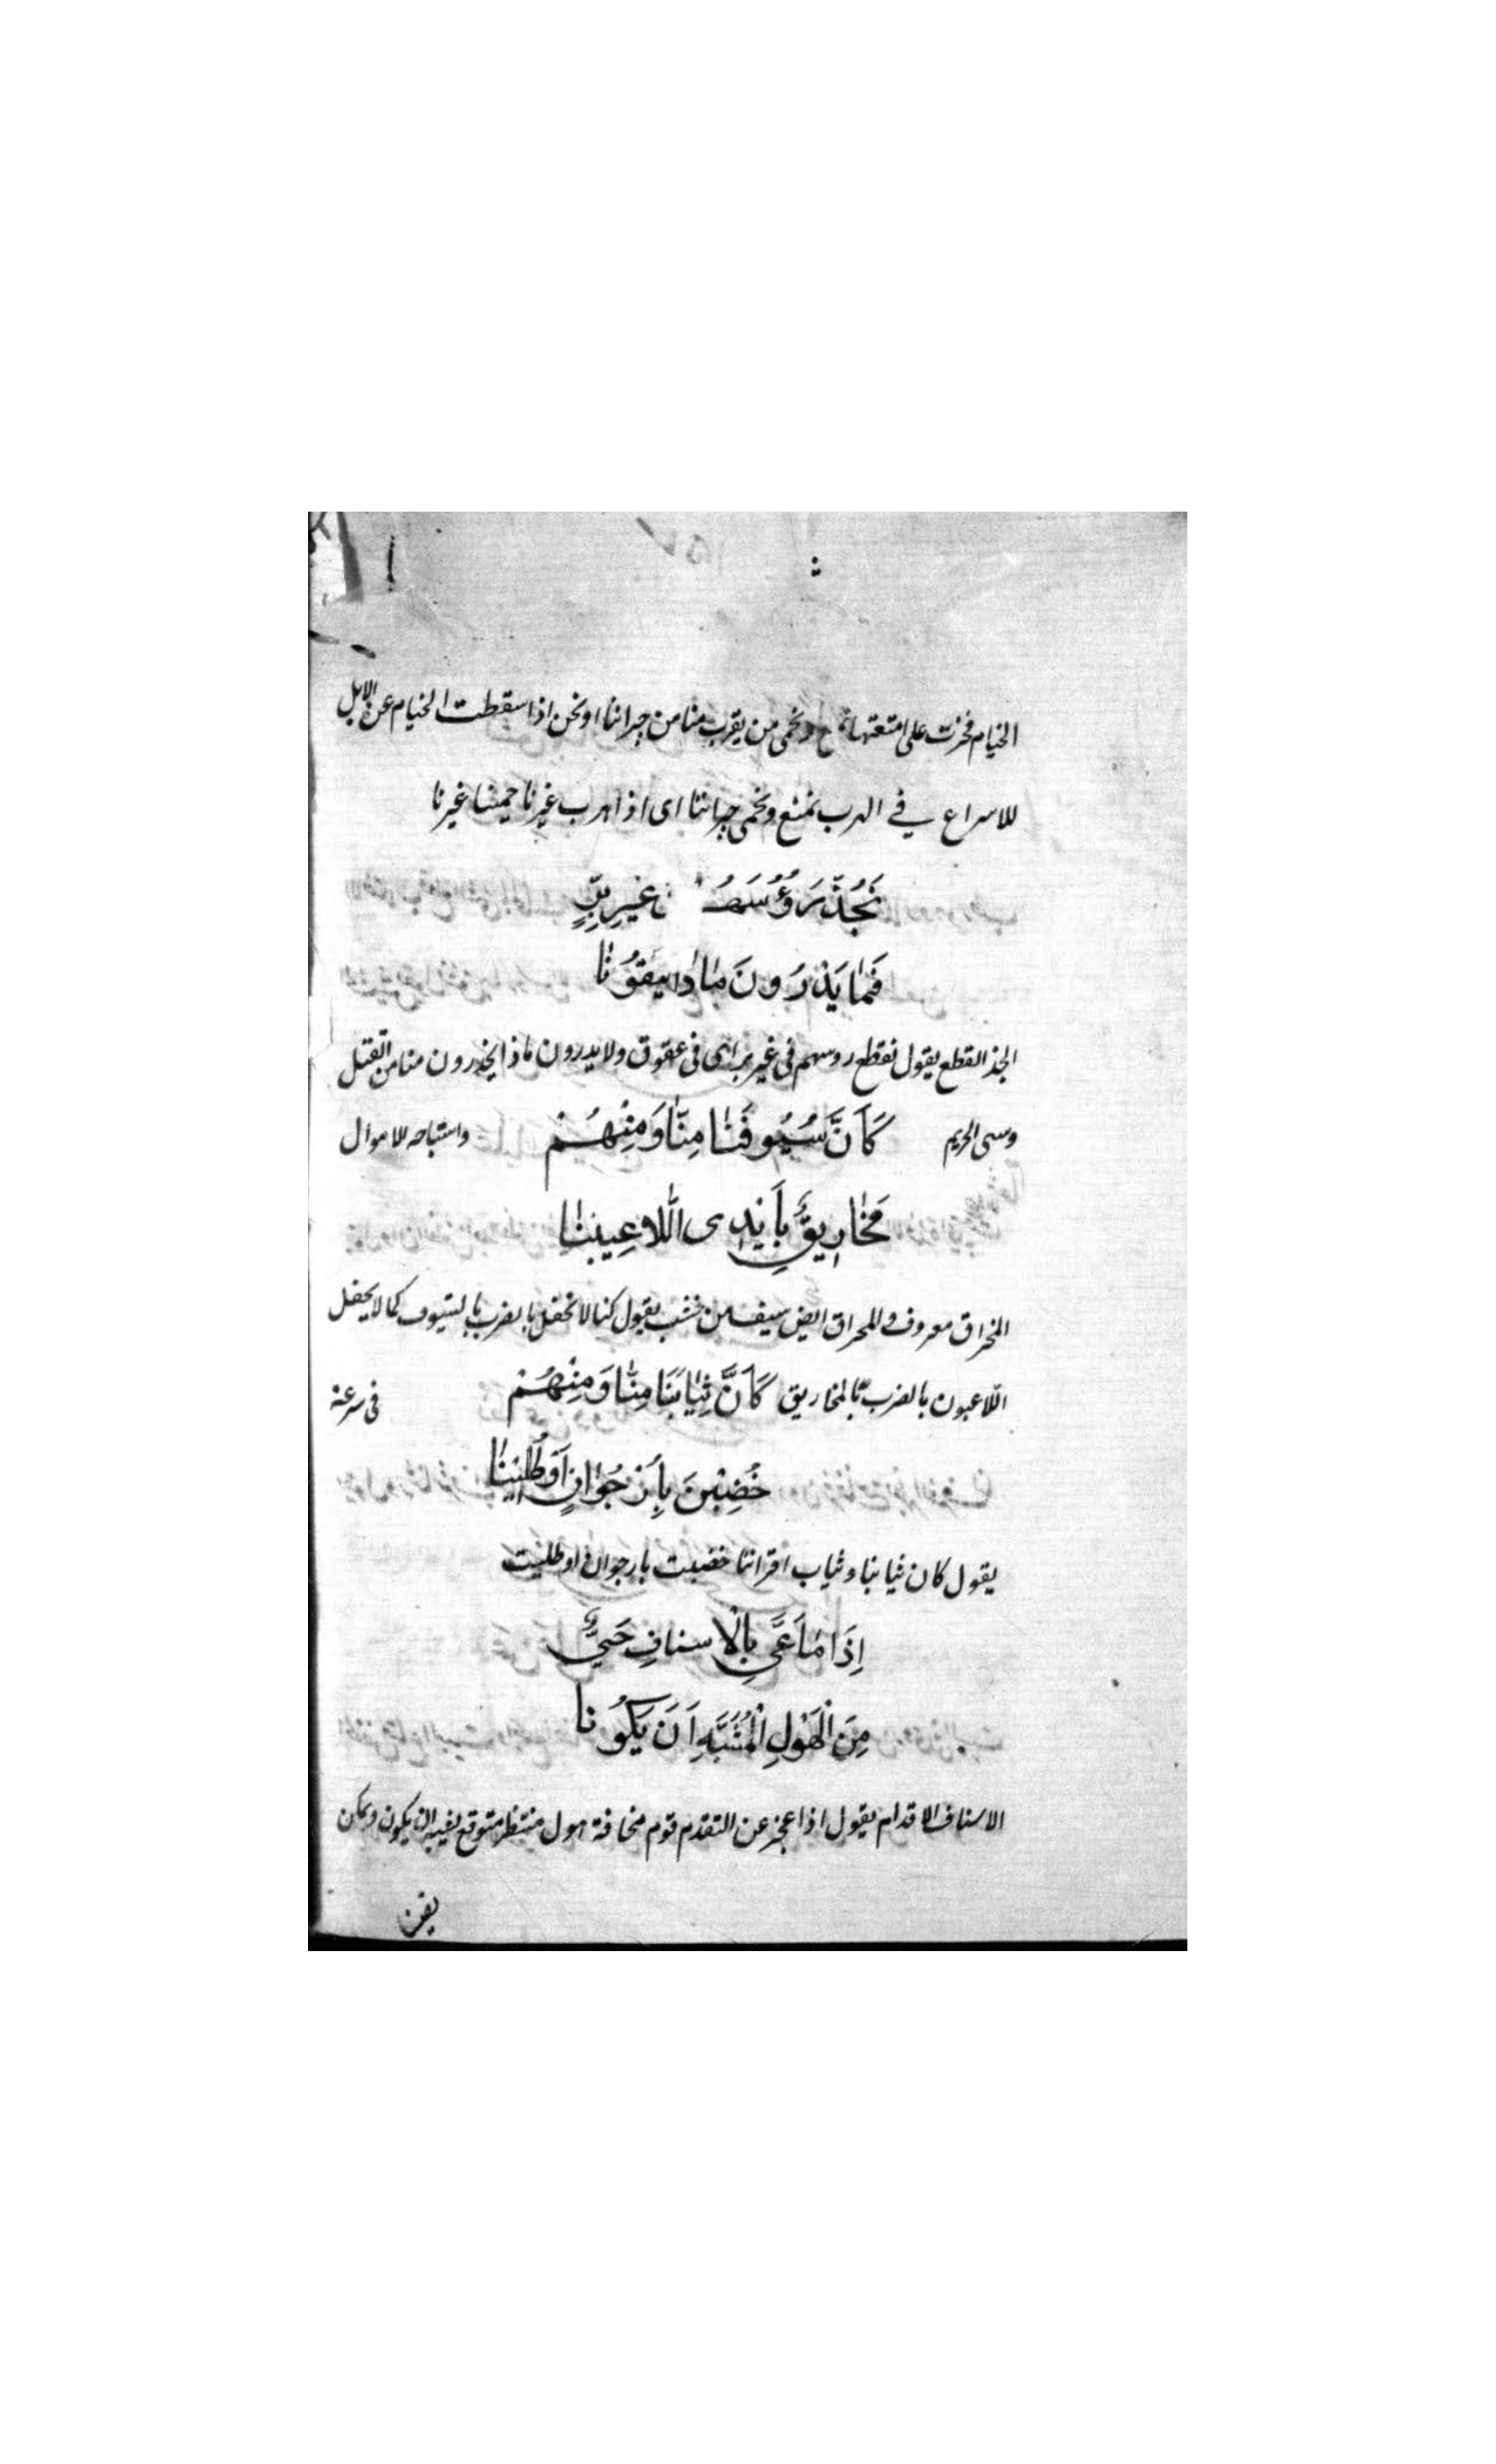 الخيام فخرت على امتعتها نمنع ونحمى من يقرب منا من جيراننا او نحن اذا سقطت الخيام عن الابل
للاسراع في الهرب نمنع ونحمى جيراننا اى اذا هرب غيرنا حمينا غيرنا
نَجُذُّ رَؤُسَهُمْ غَيرِ بِرٍّ
فَمَا يَدْرُونَ مَاذَا يَتَّقُونَا
الجذ القطع يقول نقطع روسهم فى غير براى فى عقوق ولا يدرون ماذا يحذرون منا من القتل
وسبى الحريم كَاَنَّ سُيُوفَنَا مِنَّا وَمِنْهُمْ واستباحه الاموال
مَخَارِيقٌ بِاَيْدِى اللَّاعِبِينَا
المخراق معروف والمخراق ايض سيف من خشب يقول كنا لا نحفل بالضرب بالسيوف كما لا يحفل
اللاعبون بالضرب بالمخاريق كَاَنَّ ثِيَابَنَا مِنَّا وَمِنْهُمْ فى سرعة
خُضِبْنَ بِاُرْجُوَانٍ اَوْ طُلِينَا
يقول كان ثيابنا وثياب اقراننا خضبت بارجوان او طليت
اِذَا مَا عَىَّ بِالْاسنافِ حَىٌّ
مِنَ الْهَوْلِ الْمُشَبَّهِ اَنْ يَكُونَا
الاسناف الاقدام يقول اذا عجز عن التقدم قوم مخافة هول منتظر متوقع يشبه ان يكون ويمكن